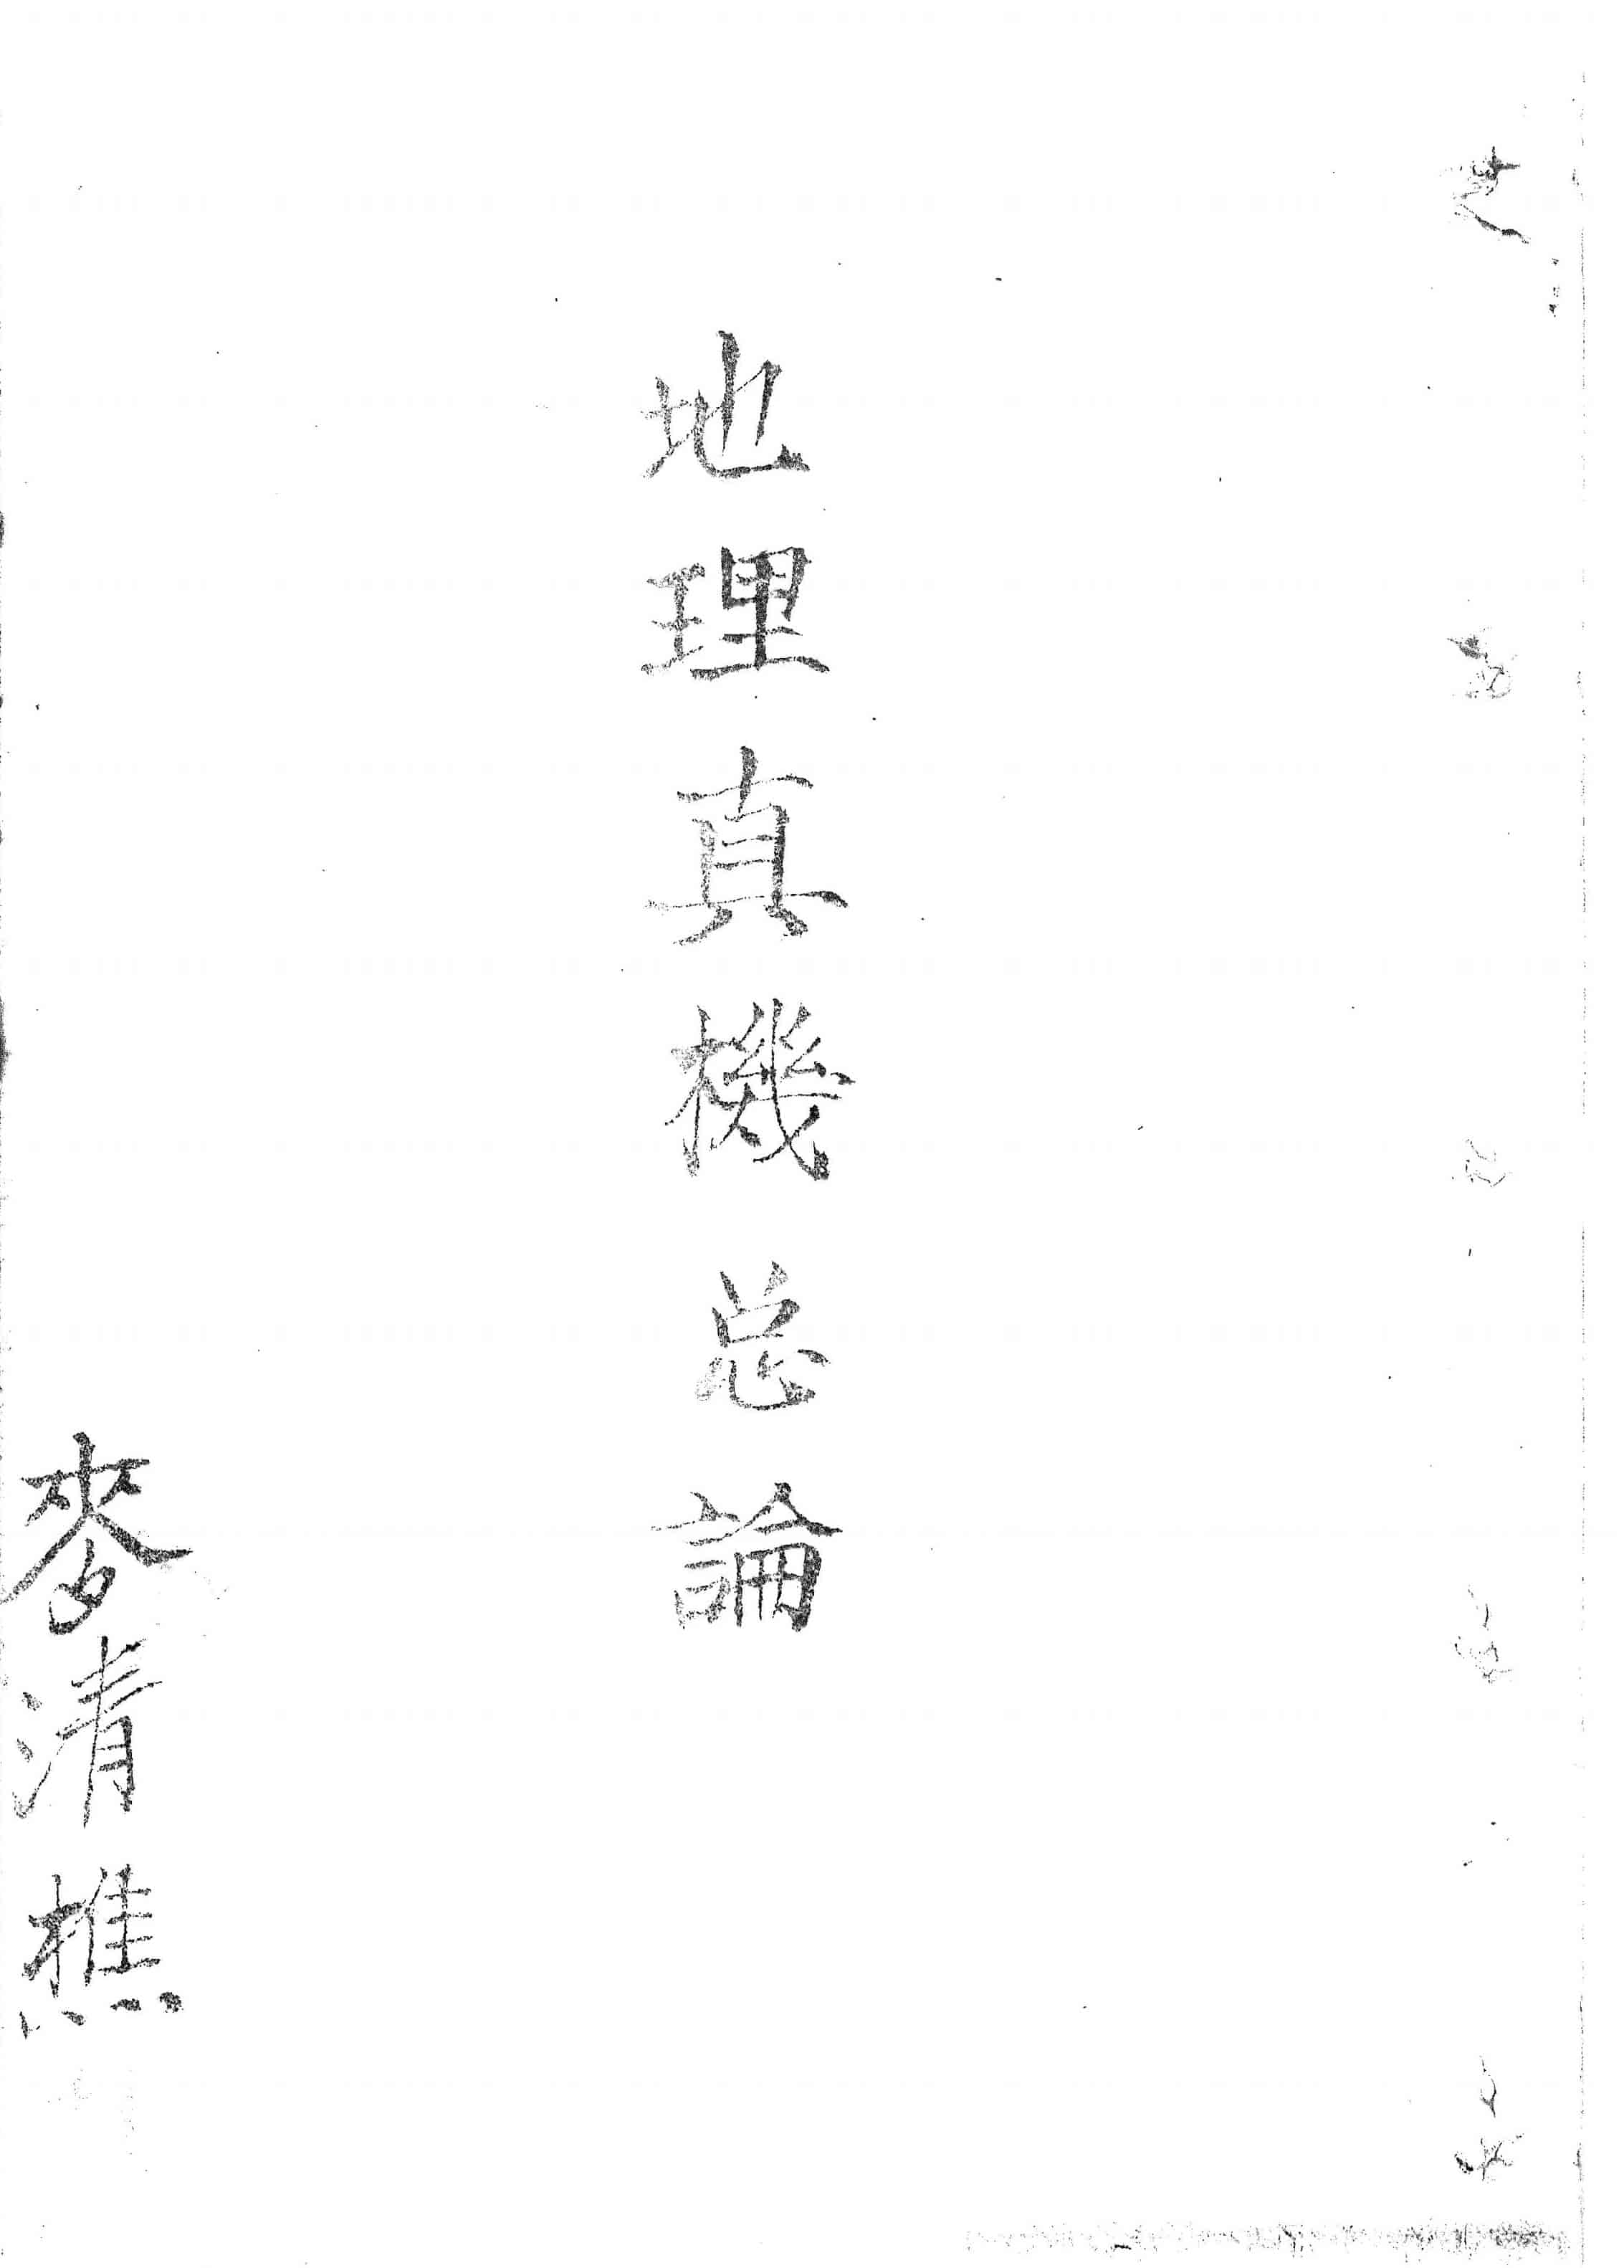 地理真機总論
麥清樵